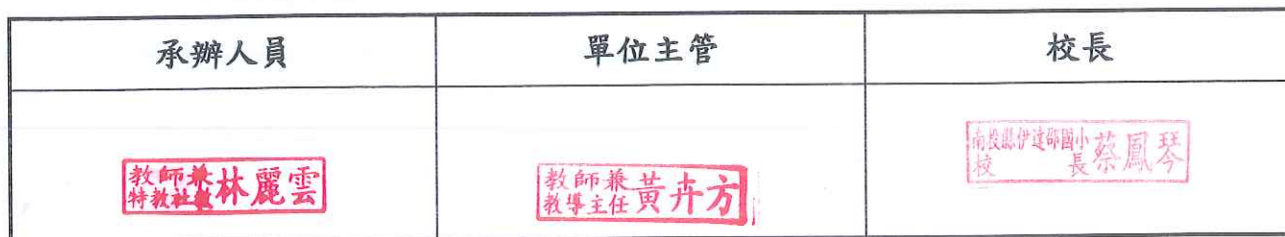 承辦人員
單位主管
校長
教師兼
特教社
林麗雲
教師兼
教導主任
黃卉方
南投縣伊達邵國小
校長
蔡鳳琴